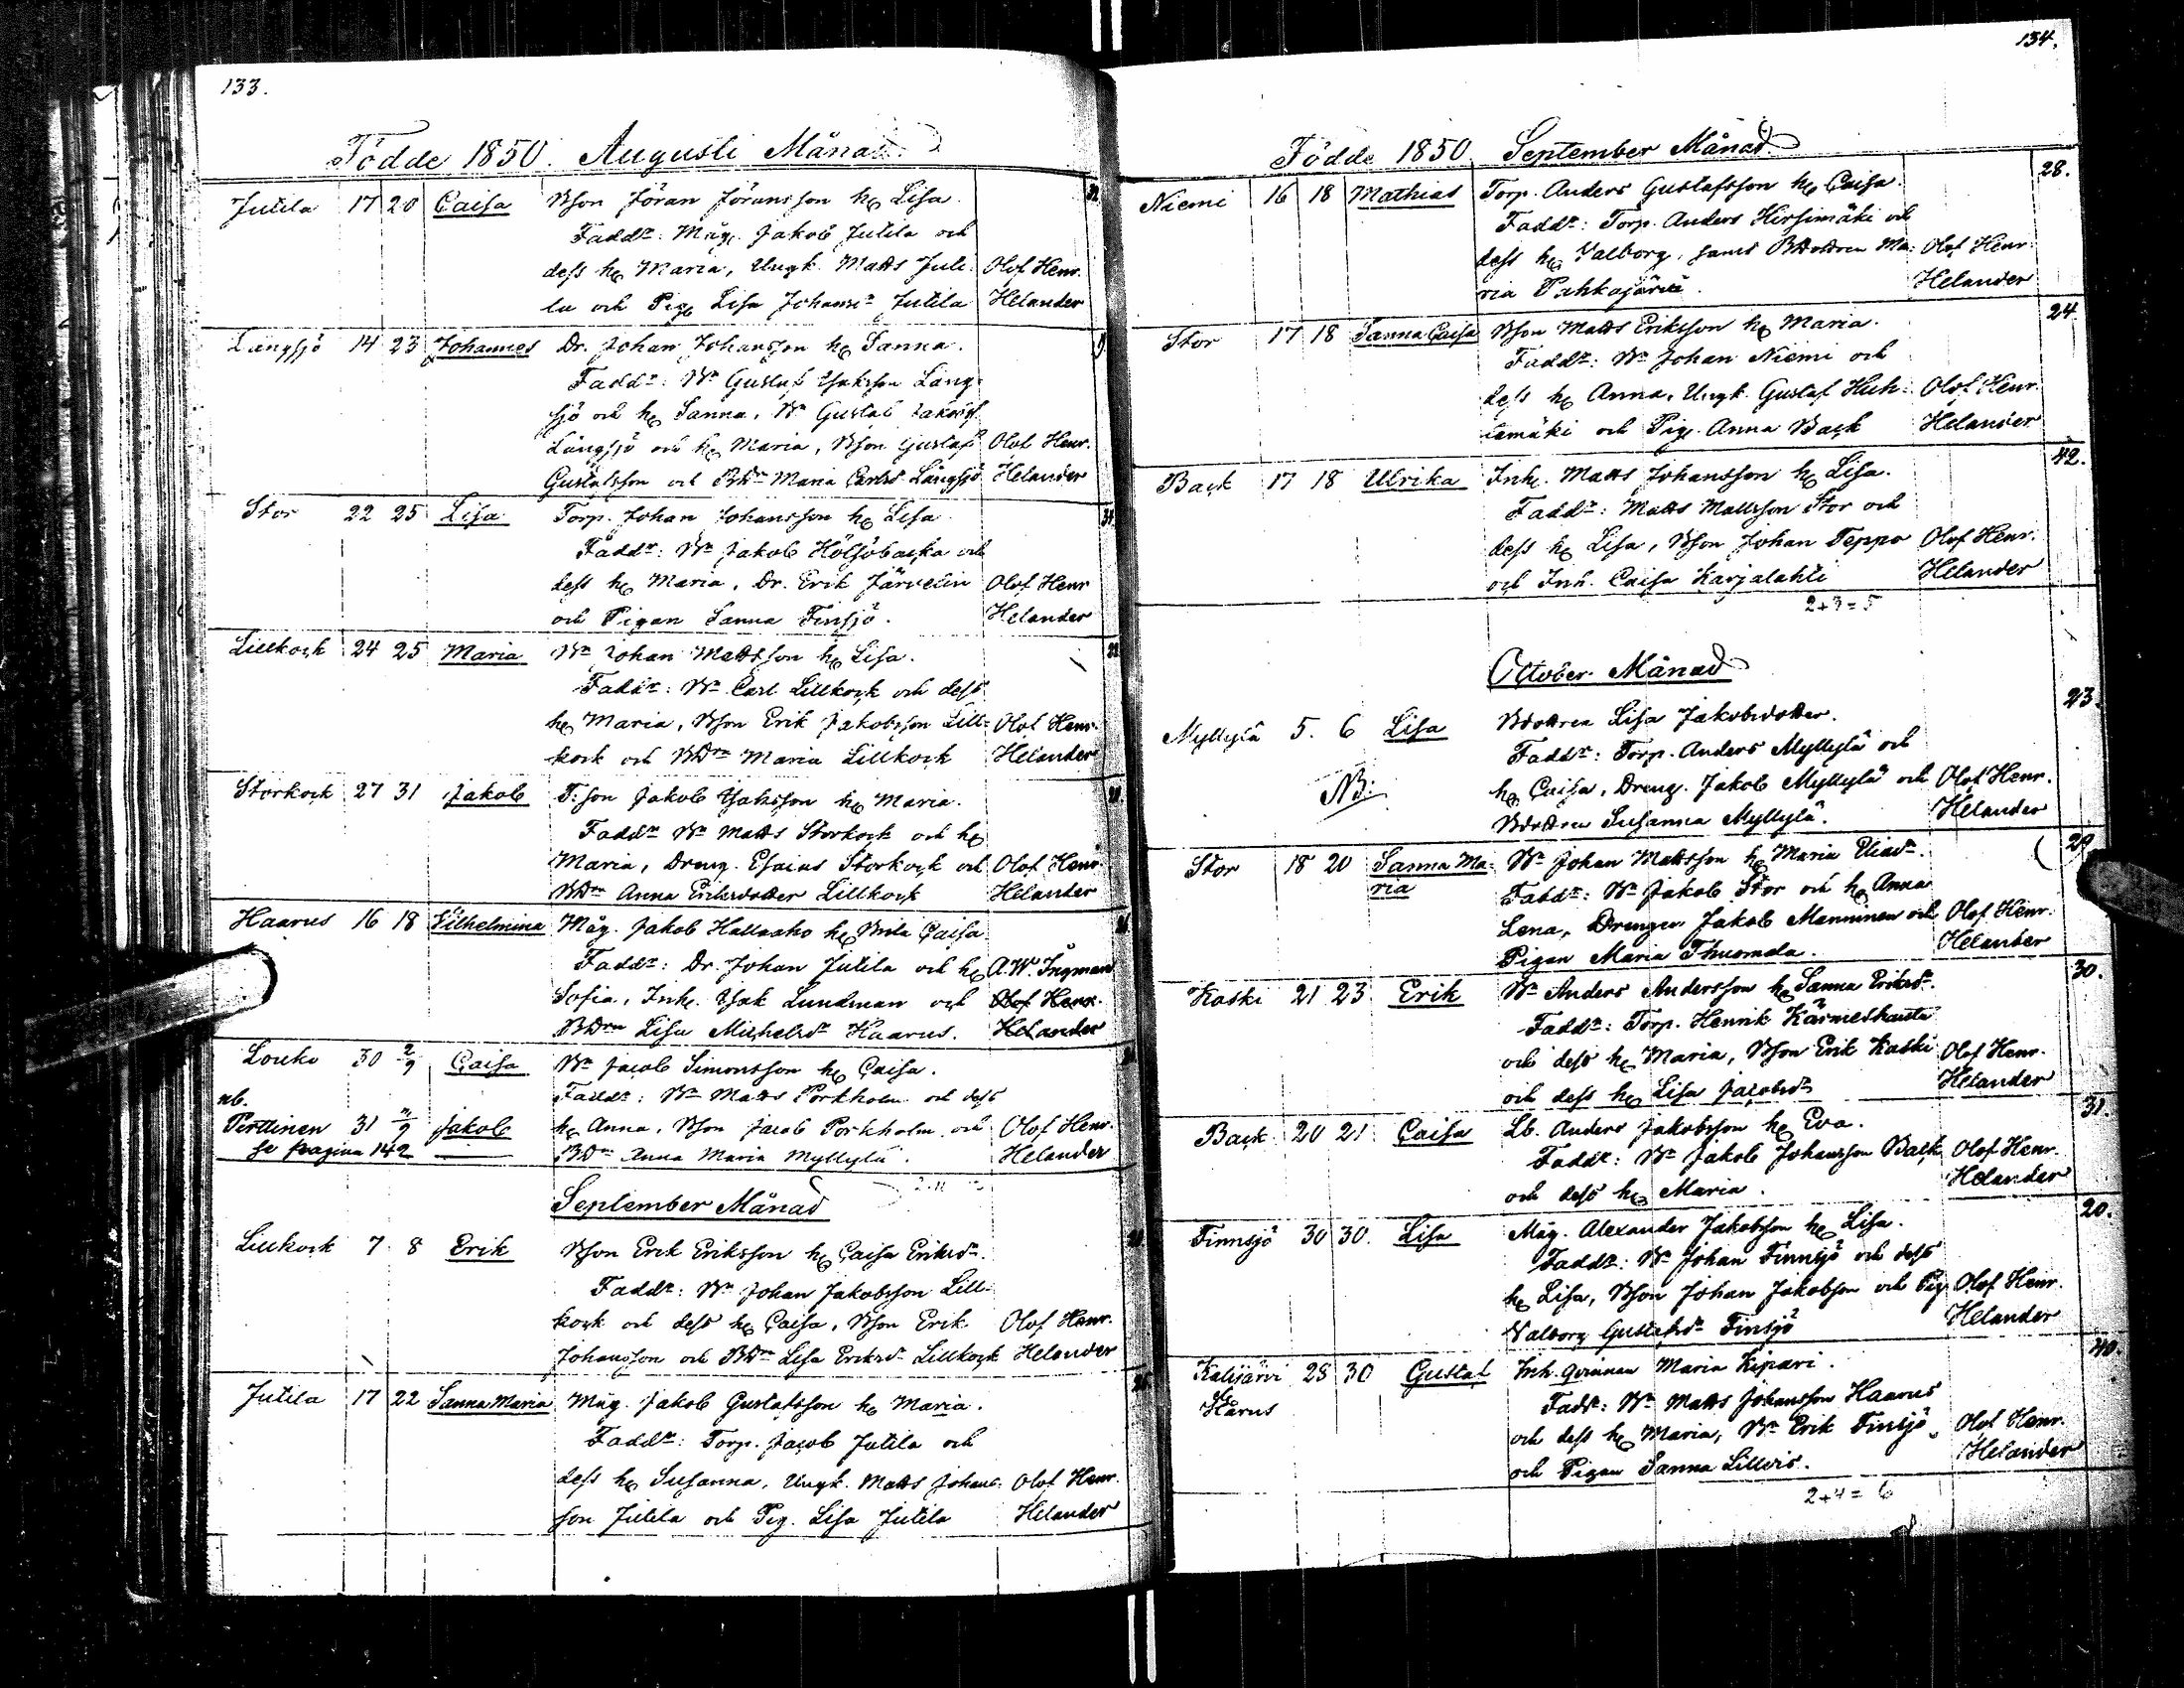 133.
Födde 1850. Augusti Månad.
Jutila 17 20 Caisa Bson Jöran Göransson h. Lisa.
Faddr: Måg. Jakob Jutila och
dess h. Maria, Ungk. Matts Juti-
la och Pig. Lisa Johansr Jutila
Olof Henr.
Helander
Långsjö 14 23 Johannes Dr. Johan Johansson h. Sanna.
Faddr: Bn Gustaf Isaksson Lång-
sjö och h. Sanna, Bn Gustaf Jakobss
Långsjö och h. Maria, Bson Gustaf
Gustafsson och BDr Maria Carlsd Långsjö
Olof Henr.
Helander
Stor 22 25 Lisa Torp. Johan Johansson h. Lisa
Faddr: Bn Jakob Höljöbacka och
dess h. Maria, Dr. Erik Järvelin
och Pigan Sanna Finsjö.
Olof Henr
Helander
Lillkock 24 25 Maria Bn Johan Mattsson h. Lisa. 22
Faddr: Bn Carl Lillkock och dess
h. Maria, Bson Erik Jakobsson Lill-
kock och BDrn Maria Lillkock
Olof Henr.
Helander
Storkock 27 31 Jakob T:son Jakob Isaksson h. Maria.
Faddr Bn Matts Storkock och h.
Maria, Dreng. Esaias Storkock och
BDrn Anna Eriksdotter Lillkock
Olof Henr
Helander
Haarus 16 18 Vilhelmina Måg. Jakob Hallaaho h. Brita Caisa
Faddr: Dr. Johan Jutila och h.
Sofia, Inh. Isak Lundman och
BDrn Lisa Michelsdr Haarus.
A. W. Ingman
Olof Henr.
Helander
Louko 30 2/9 Caisa Bn Jacob Simonsson h. Caisa.
Faddr: Bn Matts Porkholm och dess
h. Anna, Bson Jacob Porkholm och
BDrn Anna Maria Myllylä.
Olof Henr.
Helander
nb.
Perttinen 31 /9 Jakob
se pagina 142
September Månad
Lillkock 7 8 Erik Bson Erik Eriksson h. Caisa Eriksdr.
Faddr: Bn Johan Jakobsson Lill-
kock och dess h. Caisa, Bson Erik
Johansson och BDrn Lisa Eriksdr Lillkock
Olof Henr.
Helander
Jutila 17 22 Sanna Maria Måg. Jakob Gustafsson h. Maria.
Faddr: Torp. Jacob Jutila och
dess h. Susanna, Ungk. Matts Johans-
son Jutila och Pig. Lisa Jutila
Olof Henr.
Helander
134.
Födde 1850. September Månad
Niemi 16 18 Mathias Torp. Anders Gustafsson h. Caisa. 28.
Faddr: Torp. Anders Hirsimäki och
dess h. Valborg, samt Bdottren Ma-
ria Pahkajärvi.
Olof Henr.
Helander
Stor 17 18 Sanna Caisa Bson Matts Eriksson h. Maria. 24
Faddr: Bn Johan Niemi och
dess h. Anna, Ungk. Gustaf Huh-
tamäki och Pig. Anna Back
Olof Henr.
Helander
Back 17 18 Ulrika Inh. Matts Johansson h. Lisa. 42.
Faddr: Matts Mattsson Stor och
dess h. Lisa, Bson Johan Teppo
och Inh. Caisa Karjalahti
Olof Henr.
Helander
2+3=5
October Månad
Myllylä 5. 6 Lisa Bdottren Lisa Jakobsdotter. 23.
Faddr: Torp. Anders Myllylä och
h. Caisa, Dreng. Jakob Myllylä och
Bdottren Susanna Myllylä.
NB:
Olof Henr.
Helander
Stor 18 20 Sanna Ma-
ria
Bn Johan Mattsson h. Maria Eliasdr. 29
Faddr: Bn Jakob Stor och h. Anna
Lena, Drengen Jakob Manninen och
Pigan Maria Thuomola.
Olof Henr.
Helander
Kaski 21 23 Erik Bn Anders Andersson h. Sanna Eriksdr. 30.
Faddr: Torp. Henrik Kärmeshauta
och dess h. Maria, Bson Erik Kaski
och dess h. Lisa Jacobsdr
Olof Henr.
Helander
Back 20 21 Caisa Lb. Anders Jakobsson h. Eva. 31.
Faddr: Bn Jakob Johansson Back
och dess h. Maria.
Olof Henr.
Helander
Finnsjö 30 30. Lisa Måg. Alexander Jakobsson h. Lisa. 20.
Faddr: Bn Johan Finnsjö och dess
h. Lisa, Bson Johan Jakobsson och Pig
Valborg Gustafsdr Finsjö
Olof Henr.
Helander
Kalijärvi 28 30 Gustaf Inh. qvinnan Maria Kipari. 40.
Hårus
Faddr: Bn Matts Johansson Haarus
och dess h. Maria, Bn Erik Finsjö
och Pigan Sanna Lillvis.
Olof Henr.
Helander
2+4=6